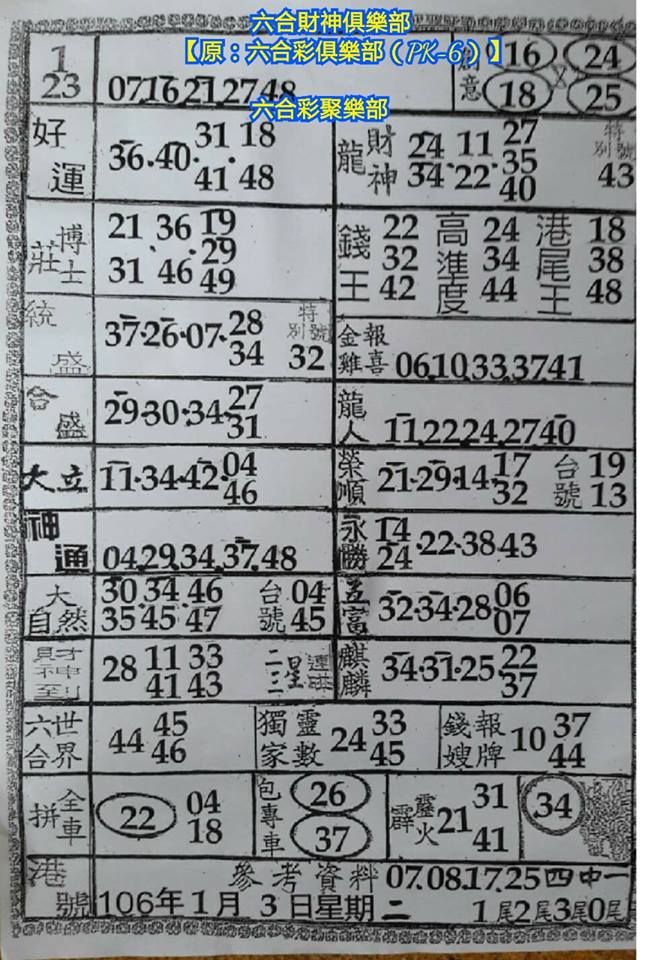 六合財神俱樂部
【原：六合彩俱樂部（PK-6）】
六合彩聚樂部
1
23
07.16.21.27.48
意
16 24
X
18 25
好運
36.40. 31 18
41 48
龍
財神
24 11 27
35
34.22. 40
特別號
43
莊
博士
21 36 19
29
31 46 49
錢王
22
32
42
高進度
24
34
44
港尾王
18
38
48
統盛
37.26.07. 28
34
特別號
32
金雞報喜
06.10.33.37.41
合盛
29.30.34. 27
31
龍人
11.22.24.27.40
大立
11.34.42. 04
46
榮順
21.29.14. 17
32
台號
19
13
神通
04.29.34.37.48
永勝
14
24 .22.38.43
大自然
30 34 46
35 45 47
台號
04
45
五富
32.34.28. 06
07
財神到
28 11 33
41 43
二三星
麒麟
34.31.25. 22
37
六合世界
44 45
46
獨家靈數
24 33
45
錢嫂報牌
10 37
44
拼全車
22 04
18
包專車
26
37
霹靂火
21 31
41
34
港號
參考資料 07.08.17.25 四中一
106年1月3日星期二 1尾2尾3尾0尾